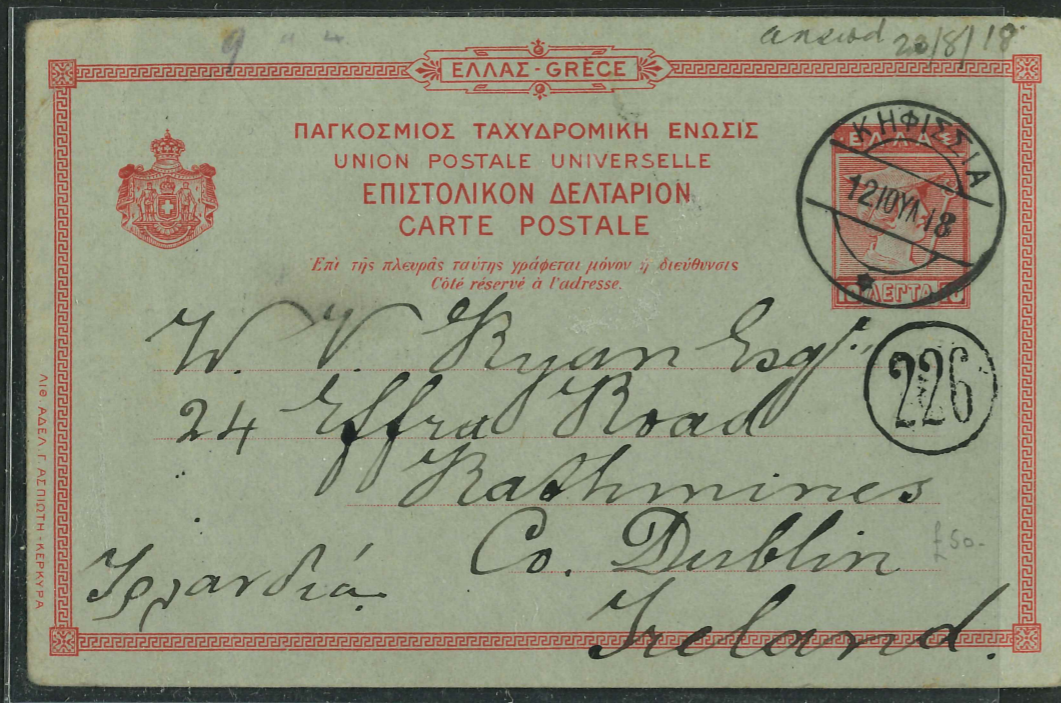 answd 20/8/18
ΕΛΛΑΣ-GRÈCE
ΠΑΓΚΟΣΜΙΟΣ ΤΑΧΥΔΡΟΜΙΚΗ ΕΝΩΣΙΣ
UNION POSTALE UNIVERSELLE
ΕΠΙΣΤΟΛΙΚΟΝ ΔΕΛΤΑΡΙΟΝ
CARTE POSTALE
Ἐπὶ τῆς πλευρᾶς ταύτης γράφεται μόνον ἡ διεύθυνσις
Côté réservé à l'adresse.
ΕΛΛΑΣ
10 ΛΕΠΤΑ 10
ΚΗΦΙΣΣΙΑ
12 ΙΟΥΛ 18
226
W. V. Ryan Esq.
24 Effra Road
Rathmines
Co. Dublin
Ireland.
Ἰρλανδία
£50-
ΛΙΘ. ΑΔΕΛ. Γ. ΑΣΠΙΩΤΗ - ΚΕΡΚΥΡΑ